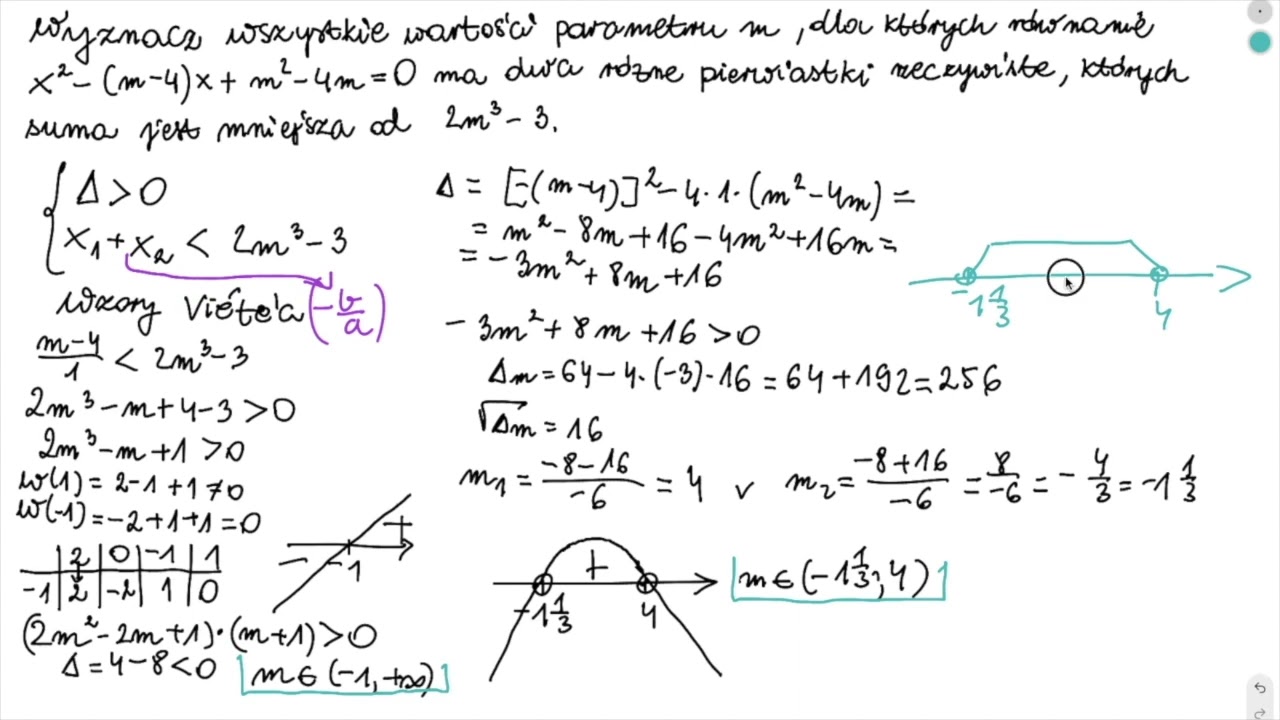 Wyznacz wszystkie wartości parametru m, dla których równanie
x² - (m-4)x + m² - 4m = 0 ma dwa różne pierwiastki rzeczywiste, których
suma jest mniejsza od 2m³ - 3.
Δ > 0
x₁ + x₂ < 2m³ - 3
Wzory Viete'a (-b/a)
(m-4)/1 < 2m³ - 3
2m³ - m + 4 - 3 > 0
2m³ - m + 1 > 0
W(1) = 2 - 1 + 1 ≠ 0
W(-1) = -2 + 1 + 1 = 0
| 2 | 0 | -1 | 1
-1 | 2 | -2 | 1 | 0
(2m² - 2m + 1) · (m+1) > 0
Δ = 4 - 8 < 0 m ∈ (-1, +∞)
- -1 +
Δ = [-(m-4)]² - 4 · 1 · (m² - 4m) =
= m² - 8m + 16 - 4m² + 16m =
= -3m² + 8m + 16
-3m² + 8m + 16 > 0
Δm = 64 - 4 · (-3) · 16 = 64 + 192 = 256
√Δm = 16
m₁ = (-8-16)/-6 = 4 v m₂ = (-8+16)/-6 = 8/-6 = -4/3 = -1 1/3
+
-1 1/3 4
m ∈ (-1 1/3; 4)
-1 1/3 4